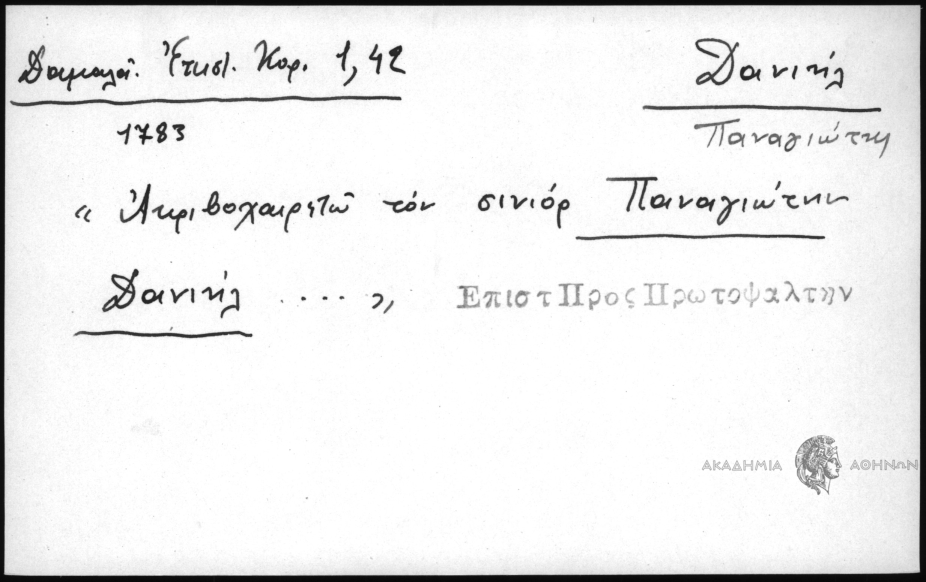 Δαμαλᾶ. Ἐπιστ. Κορ. 1,42
Δανιήλ
1783
Παναγιώτης
" Ἀκριβοχαιρετῶ τὸν σινιόρ Παναγιώτην
Δανιήλ .... „
Επιστ Προς Πρωτοψαλτην
ΑΚΑΔΗΜΙΑ ΑΘΗΝΩΝ